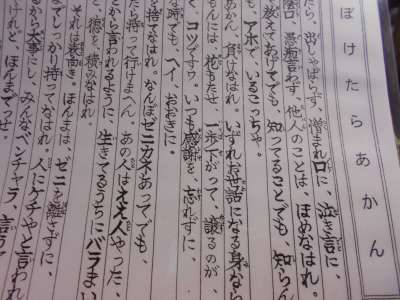 ぼけたらあかん
たら、出しゃばらず、憎まれ口に、泣き言に、
陰口、愚痴言わず、他人のことは、ほめなはれ。
えてあげてでも、知ってることでも、知らん
も、アホで、いるこっちゃ。
あかん、負けなはれ。いずれお世話になる身なら
もんには、花もたせ、一歩下がって、譲るのが、
く、コツでっせ。いつも感謝を忘れずに、
な時でも、ヘイ、おおきに。
を捨てなはれ。なんぼゼニカネあっても、
だら持って行けまへん。あの人はええ人やった、
とから言われるように、生きてるうちにバラまい
と、徳を積みなはれ。
それは表向き。ほんまは、ゼニを離さずに、
でしっかり持ってなはれ。人にケチやと言われ
るから大事にし、みんなベンチャラ、言う
けれど、ほんまでっせ。